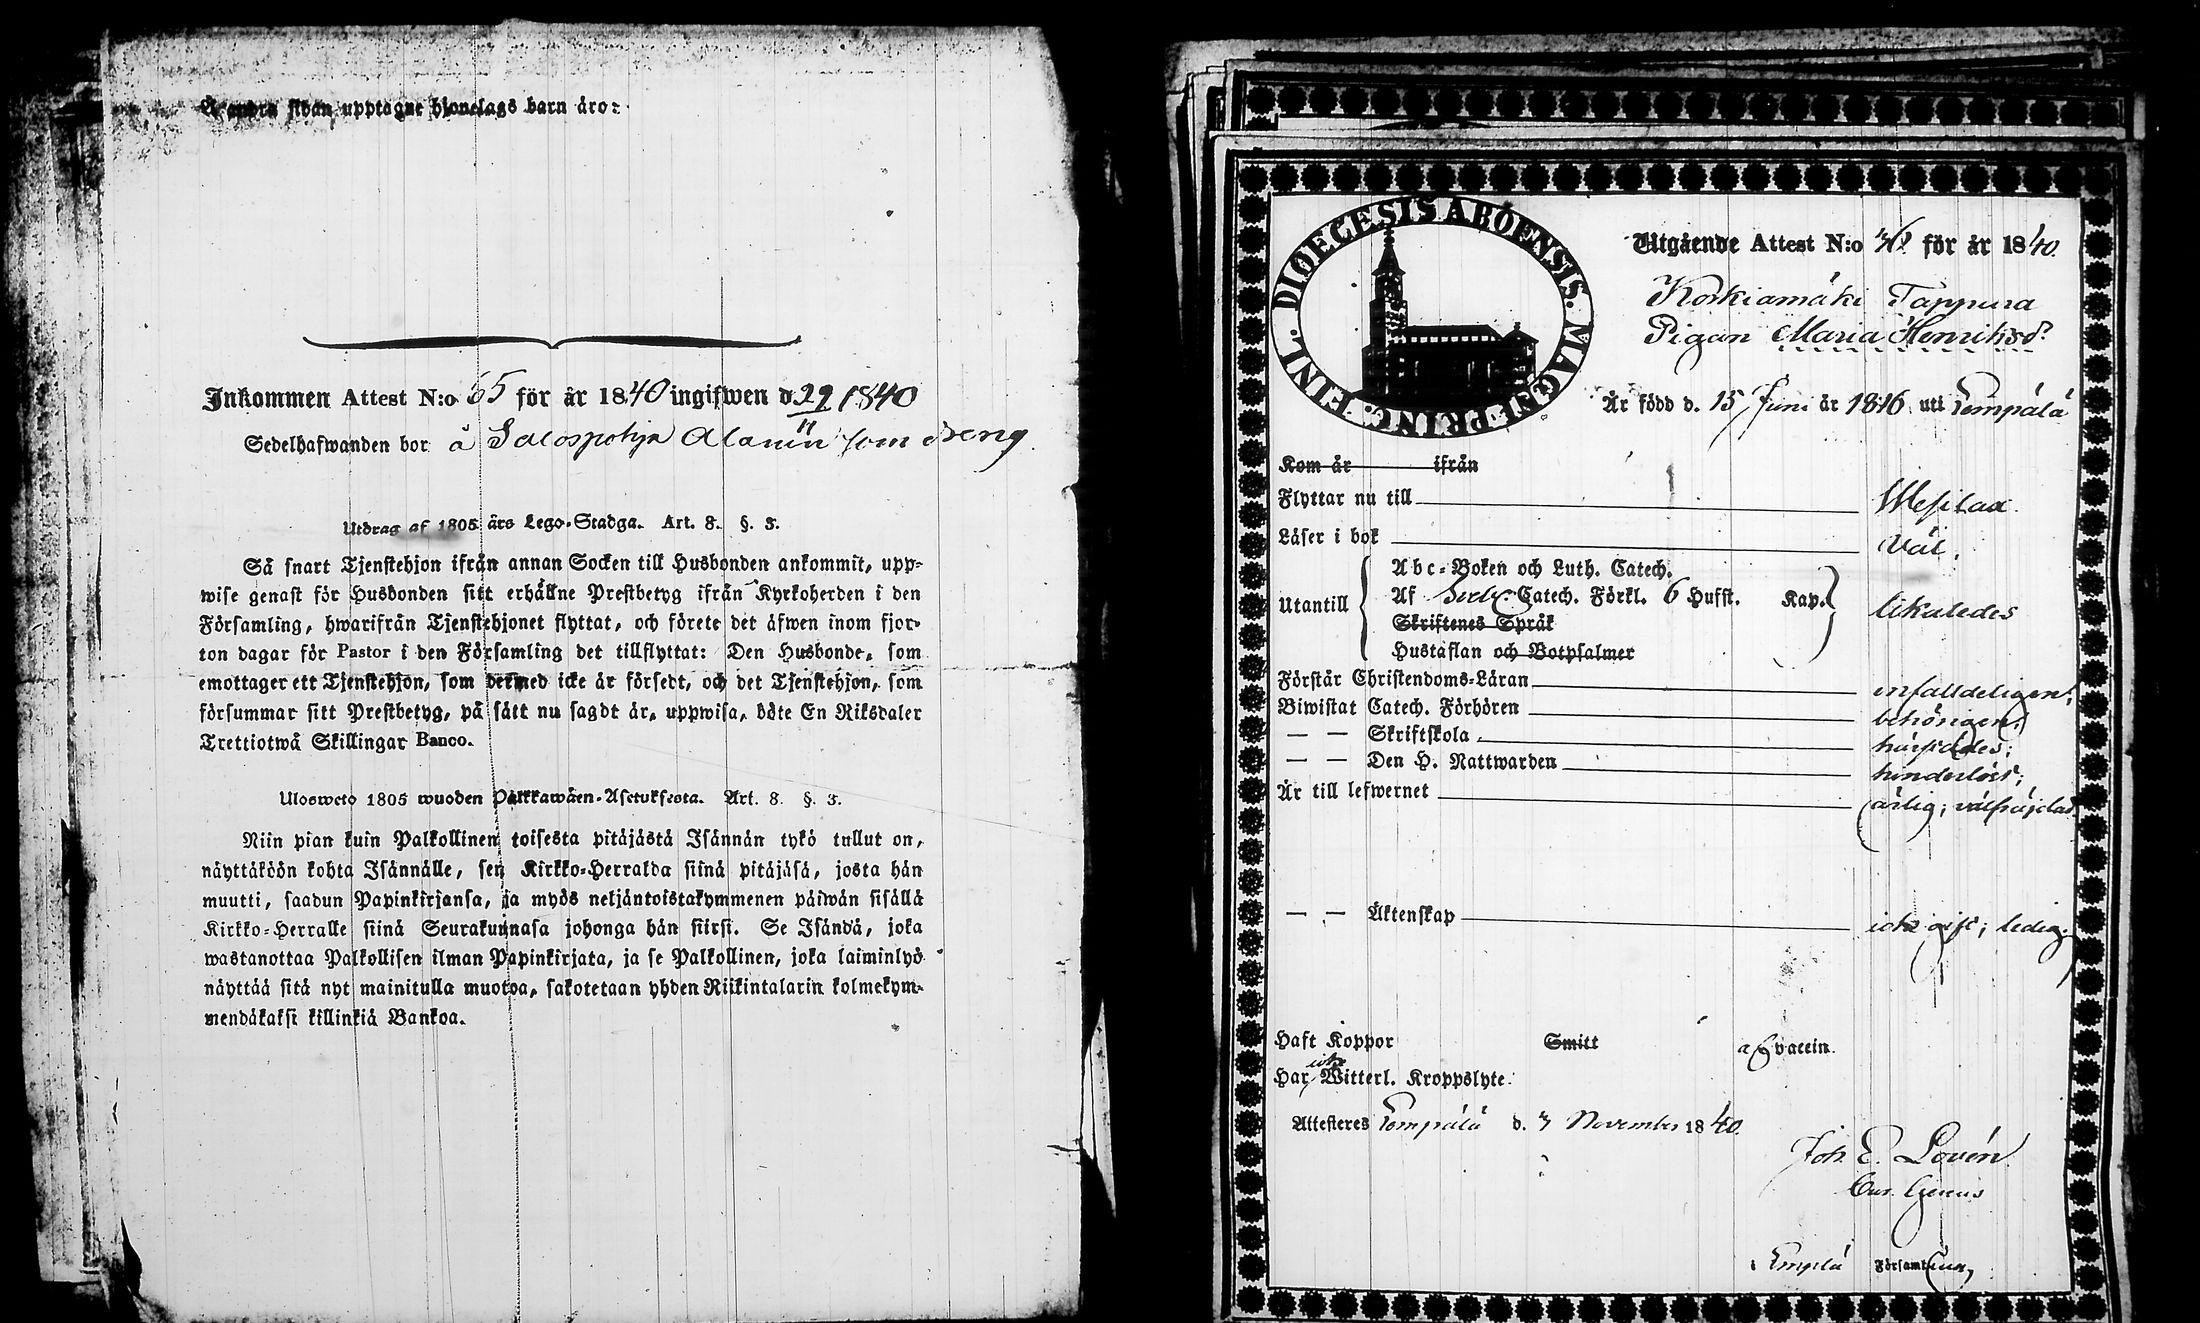 Å andra sidan upptagne hjonelags barn äro:
Inkommen Attest N:o 55 för år 1840 ingifwen d. 29/11 1840
Sedelhafwanden bor å som dreng
Utdrag af 1805 års Lego-Stadga. Art. 8. §. 3.
Så snart Tjenstehjon ifrån annan Socken till Husbonden ankommit, upp-
wise genast för Husbonden sitt erhållne Prestbetyg ifrån Kyrkoherden i den
Församling, hwarifrån Tjenstehjonet flyttat, och förete det äfwen inom fjor-
ton dagar för Pastor i den Församling det tillflyttat: Den Husbonde, som
emottager ett Tjenstehjon, som dermed icke är försedt, och det Tjenstehjon, som
försummar sitt Prestbetyg, på sätt nu sagdt är, uppwisa, böte En Riksdaler
Trettiotwå Skillingar Banco.
Ulosweto 1805 wuoden Palkkawäen-Asetuksesta. Art. 8. §. 3.
Niin pian kuin Palkollinen toisesta pitäjästä Isännän tykö tullut on,
näyttäköön kohta Isännälle, sen Kirkko-Herralda siinä pitäjäsä, josta hän
muutti, saadun Papinkirjansa, ja myös neljäntoistakymmenen päiwän sisällä
Kirkko-Herralle siinä Seurakunnasa johonga hän siirsi. Se Isändä, joka
wastanottaa Palkollisen ilman Papinkirjata, ja se Palkollinen, joka laiminlyö
näyttää sitä nyt mainitulla muotoa, sakotetaan yhden Riikintalarin kolmekym-
mendäkaksi killinkiä Bankoa.
DIOECESIS ABOENSIS. MAGN. PRINC. FINL.
Utgående Attest N:o för år 1840.
Korkiamäki Tappura
Pigan Maria Henriksdr
Är född d. 15 Juni år 1816 uti Lempälä
Kom år ifrån
Flyttar nu till Wesilax.
Läser i bok Väl.
Abc-Boken och Luth. Catech.
Utantill Af Catech. Förkl. 6 Hufst. Kap. likaledes
Skriftenes Språk
Hustaflan och Botpsalmer
Förstår Christendoms-Läran enfalldeligen;
Biwistat Catech. Förhören behörigen;
— — Skriftskola
— — Den H. Nattwarden hinderlöst;
Är till lefwernet ärlig; välfräjdad.
— — Äktenskap icke gift; ledig.
Haft Koppor Smitt af vaccin.
Har icke Witterl. Kroppslyte.
Attesteras Lempälä d. 3 November 1840.
Joh. E. Lovén
Lempälä Församling